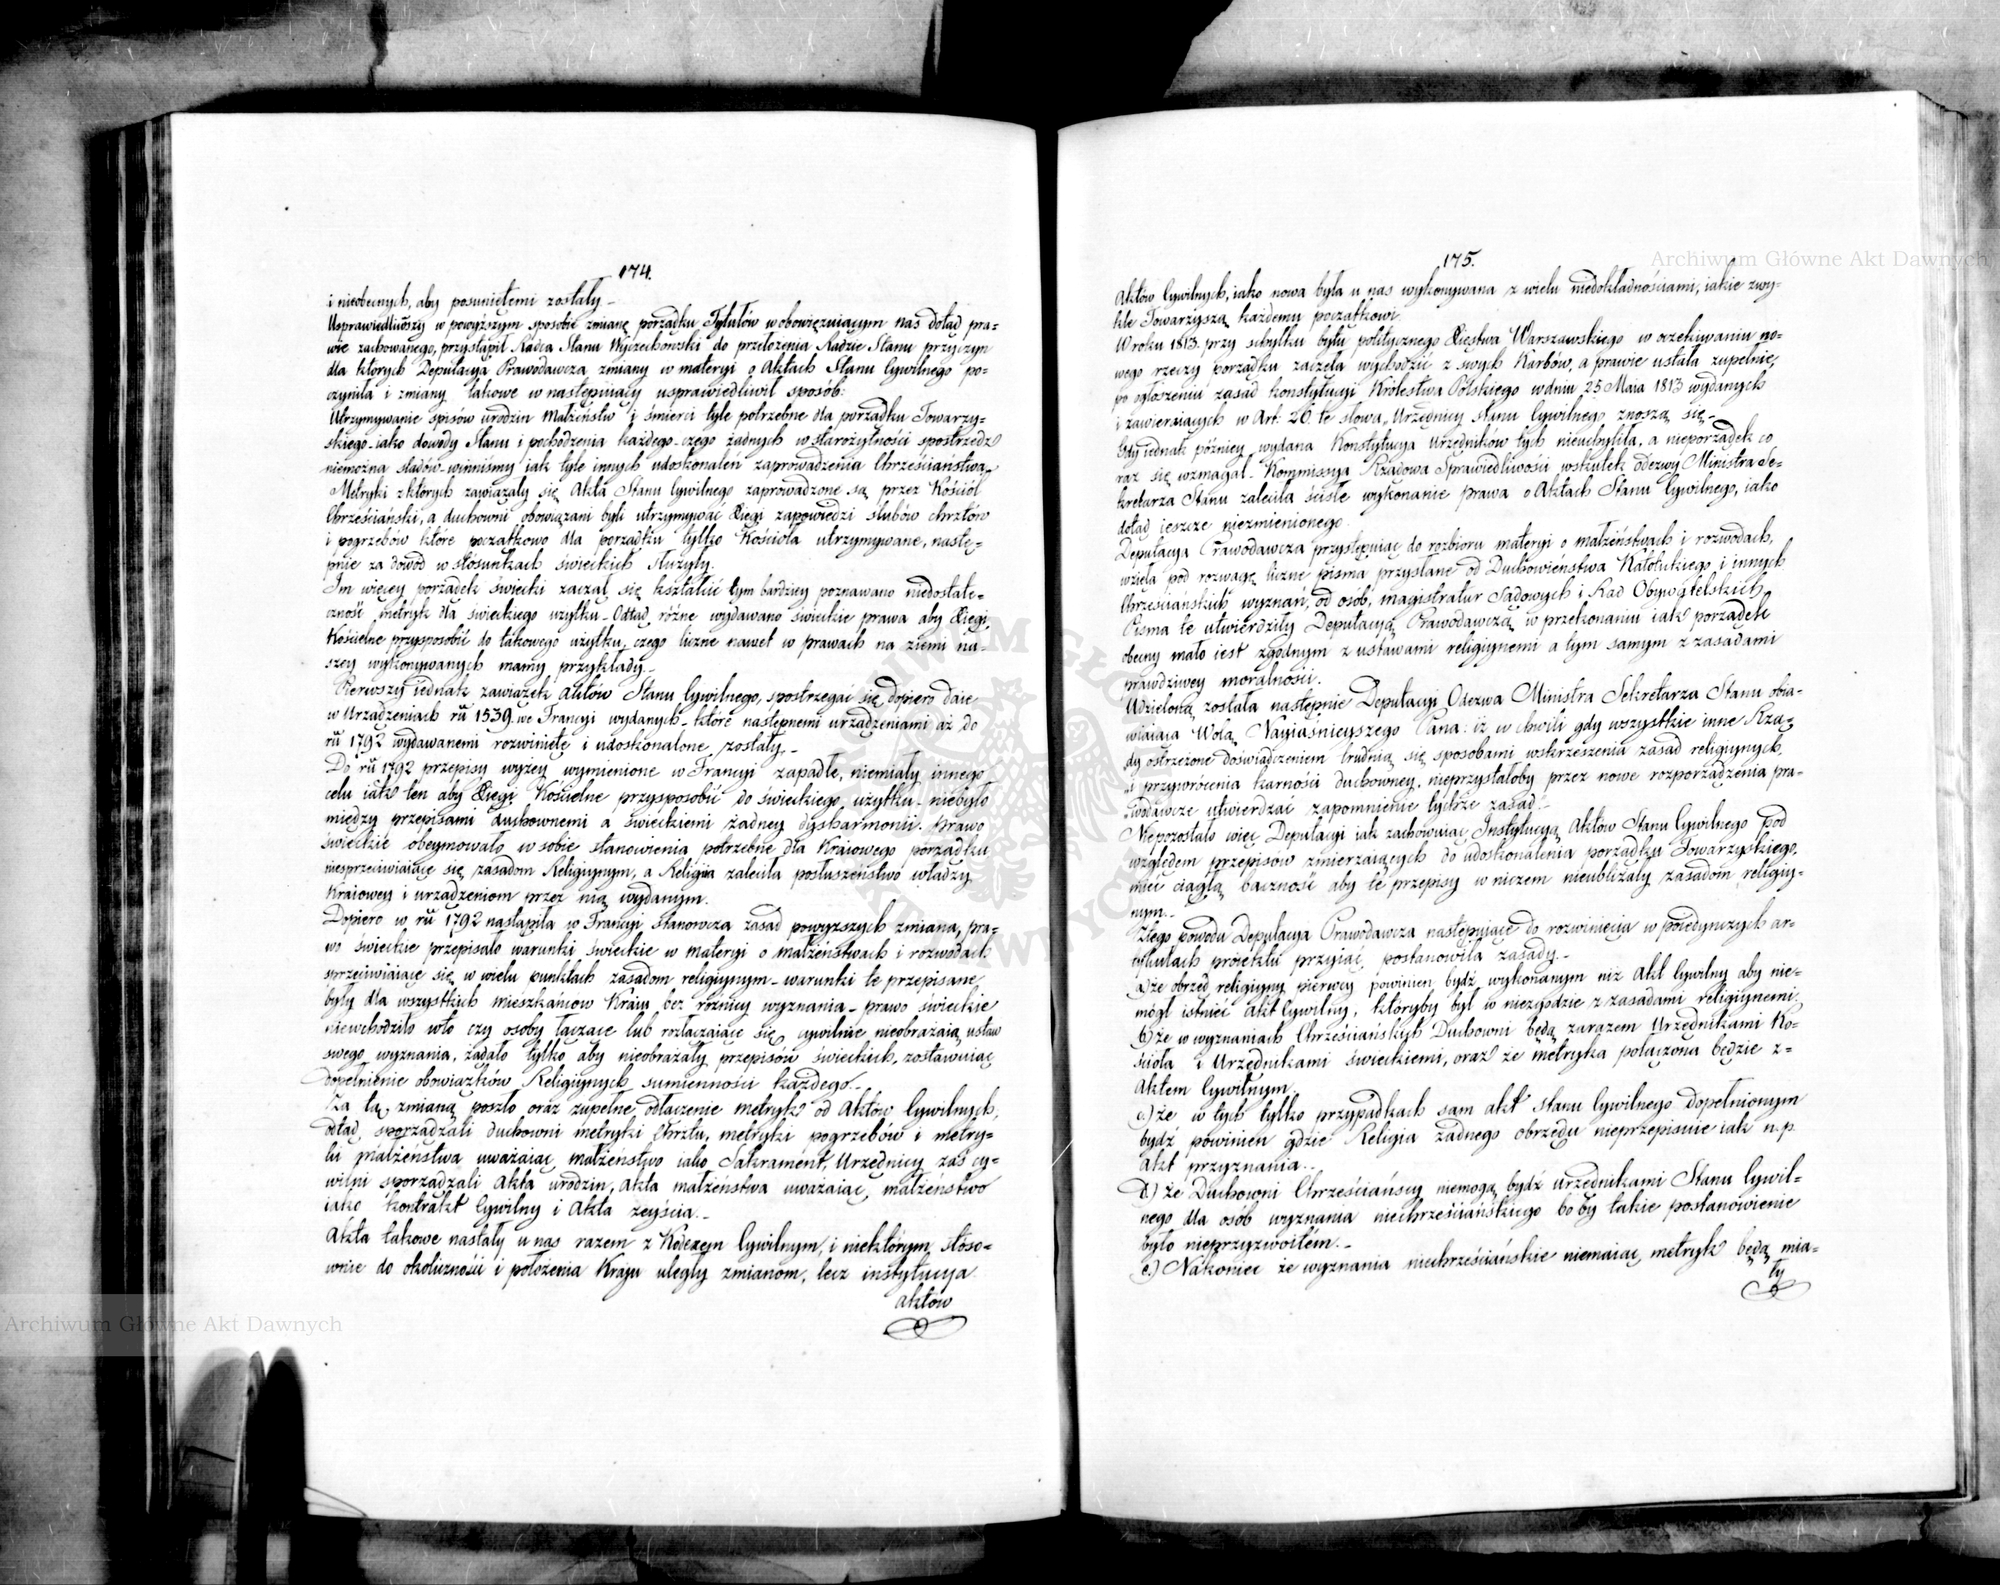 174.
i nieobecnych, aby posuniętemi zostały_
Usprawiedliwszy w powyższym sposobie zmianę porządku Tytułów w obowięzuiącym nas dotąd pra=
wie zachowanego, przystąpił Radca Stanu Wyczechowski do przełożenia Radzie Stanu przyczyn
dla których Deputacya Prawodawcza zmiany w materyi o Aktach Stanu Cywilnego po=
czyniła i zmiany takowe w następuiący usprawiedliwił sposób:
Utrzymywanie spisów urodzin Małżeństw i śmierci tyle potrzebne dla porządku Towarzy=
skiego_iako dowody Stanu i pochodzenia każdego_czego żadnych w starożytności spostrzedz
niemożna śladów_winniśmy iak tyle innych udoskonaleń zaprowadzenia Chrześciaństwa_
Metryki z których zawiązały się Akta Stanu Cywilnego zaprowadzone są przez Kościół
Chrześciański, a duchowni obowiązani byli utrzymywać Xięgi zapowiedzi ślubów chrztów
i pogrzebów które początkowo dla porządku tylko Kościoła utrzymywane, nastę=
pnie za dowód w stosunkach świeckich służyły.
Im więcey porządek świecki zaczął się kształcić tym bardziey poznawano niedostate=
czność metryk dla świeckiego użytku_Odtąd różne wydawano świeckie prawa aby Xięgi
Kościelne przysposobić do takowego użytku, czego liczne nawet w prawach na ziemi na=
szey wykonywanych mamy przykłady_
Pierwszy iednak zawiązek aktów Stanu Cywilnego, spostrzegać się dopiero daie
w Urządzeniach ru 1539. we Francyi wydanych_które następnemi urządzeniami aż do
ru 1792 wydawanemi rozwinięte i udoskonalone zostały._
Do ru 1792 przepisy wyżey wymienione w Francyi zapadłe, niemiały innego
celu iak ten aby Xięgi Kościelne przysposobić do świeckiego użytku_niebyło
między przepisami duchownemi a świeckiemi żadney dysharmonii. Prawo
świeckie obeymowało w sobie stanowienia potrzebne dla Kraiowego porządku
niesprzeciwiaiące się zasadom Religiynym, a Religiia zaleciła posłuszeństwo władzy
Kraiowey i urządzeniom przez nią wydanym.
Dopiero w ru 1792 nastąpiła w Francyi stanowcza zasad powyższych zmiana, pra=
wo świeckie przepisało warunki świeckie w materyi o małżeństwach i rozwodach
sprzeciwiaiące się w wielu punktach zasadom religiynym_warunki te przepisane
były dla wszystkich mieszkańców Kraiu bez różnicy wyznania_prawo świeckie
niewchodziło w to czy osoby łączące lub rozłączaiące się cywilnie nieobrażaią ustaw
swego wyznania, żądało tylko aby nieobrażały przepisów świeckich, zostawuiąc
dopełnienie obowiązków Religiynych sumienności każdego._
Za tą zmianą poszło oraz zupełne odłączenie metryk od Aktów Cywilnych,
odtąd sporządzali duchowni metryki Chrztu, metryki pogrzebów i metry=
ki małżeństwa uważaiąc małżeństwo iako Sakrament, Urzędnicy zaś cy=
wilni sporządzali Akta urodzin, Akta małżeństwa uważaiąc małżeństwo
iako kontrakt Cywilny i Akta zeyścia._
Akta takowe nastały u nas razem z Kodexem Cywilnym, i niektórym stoso=
wnie do okoliczności i położenia Kraju uległy zmianom, lecz instytucya
aktów
175.
Aktów Cywilnych, iako nowa była u nas wykonywana z wielu niedokładnościami, iakie zwy=
kle Towarzyszą każdemu początkowi
W roku 1813. przy schyłku bytu politycznego Xięstwa Warszawskiego w oczekiwaniu no=
wego rzeczy porządku zaczęła wychodzić z swych Karbów, a prawie ustała zupełnie,
po ogłoszeniu zasad konstytucyi Królestwa Polskiego w dniu 25 Maia 1813 wydanych
i zawieraiących w Art: 26. te słowa „Urzędnicy stanu Cywilnego znoszą się_
Gdy iednak późniey wydana Konstytucya Urzędników tych nieuchyliła, a nieporządek co
raz się wzmagał_Kommissya Rządowa Sprawiedliwości wskutek Odezwy Ministra Se=
kretarza Stanu zaleciła ścisłe wykonanie prawa o Aktach Stanu Cywilnego, iako
dotąd ieszcze niezmienionego.
Deputacya Prawodawcza przystępuiąc do rozbioru materyi o małżeństwach i rozwodach,
wzięła pod rozwagę liczne pisma przysłane od Duchowieństwa Katolickiego i innych
Chrześciańskich wyznań, od osób, magistratur Sądowych i Rad Obywatelskich
Pisma te utwierdziły Deputacyą Prawodawczą w przekonaniu iak porządek
obecny mało iest zgodnym z ustawami religiynemi a tym samym z zasadami
prawdziwey moralności.
Udzieloną została następnie Deputacyi Odezwa Ministra Sekretarza Stanu obia=
wiaiąca Wolą Nayiaśnieyszego Pana: iż w chwili gdy wszystkie inne Rzą=
dy ostrzeżone doświadczeniem trudnią się sposobami wskrzeszenia zasad religiynych
i przywrócenia karności duchowney, nieprzystałoby przez nowe rozporządzenia pra=
wodawcze utwierdzać zapomnienie tychże zasad._
Niepozostało więc Deputacyi iak zachowuiąc Instytucyą Aktów Stanu Cywilnego pod
względem przepisów zmierzaiących do udoskonalenia porządku Towarzyskiego,
mieć ciągłą baczność aby te przepisy w niczem nieubliżały zasadom religiy=
nym._
Z tego powodu Deputacya Prawodawcza następuiące do rozwinięcia w poiedynczych ar=
tykułach proiektu przyiąć postanowiła zasady._
a) że obrzęd religiyny pierwey powinien bydź wykonanym niż Akt Cywilny aby nie=
mógł istnieć akt Cywilny, któryby był w niezgodzie z zasadami religiynemi.
b) że w wyznaniach Chrześciańskich Duchowni będą zarazem Urzędnikami Ko=
ścioła i Urzędnikami świeckiemi, oraz że metryka połączona będzie z=
Aktem Cywilnym,
c.) że w tych tylko przypadkach sam akt stanu Cywilnego dopełnionym
bydź powinien gdzie Religia żadnego obrzędu nieprzepisuie iak n.p.
Akt przyznania._
d.) że Duchowni Chrześciańscy niemogą bydź urzędnikami Stanu Cywil=
nego dla osób wyznania niechrześciańskiego bo by takie postanowienie
było nieprzyzwoitem._
e.) Nakoniec że wyznania niechrześciańskie niemaiąc metryk będą mia=
ły
Archiwum Główne Akt Dawnych
Archiwum Główne Akt Dawnych